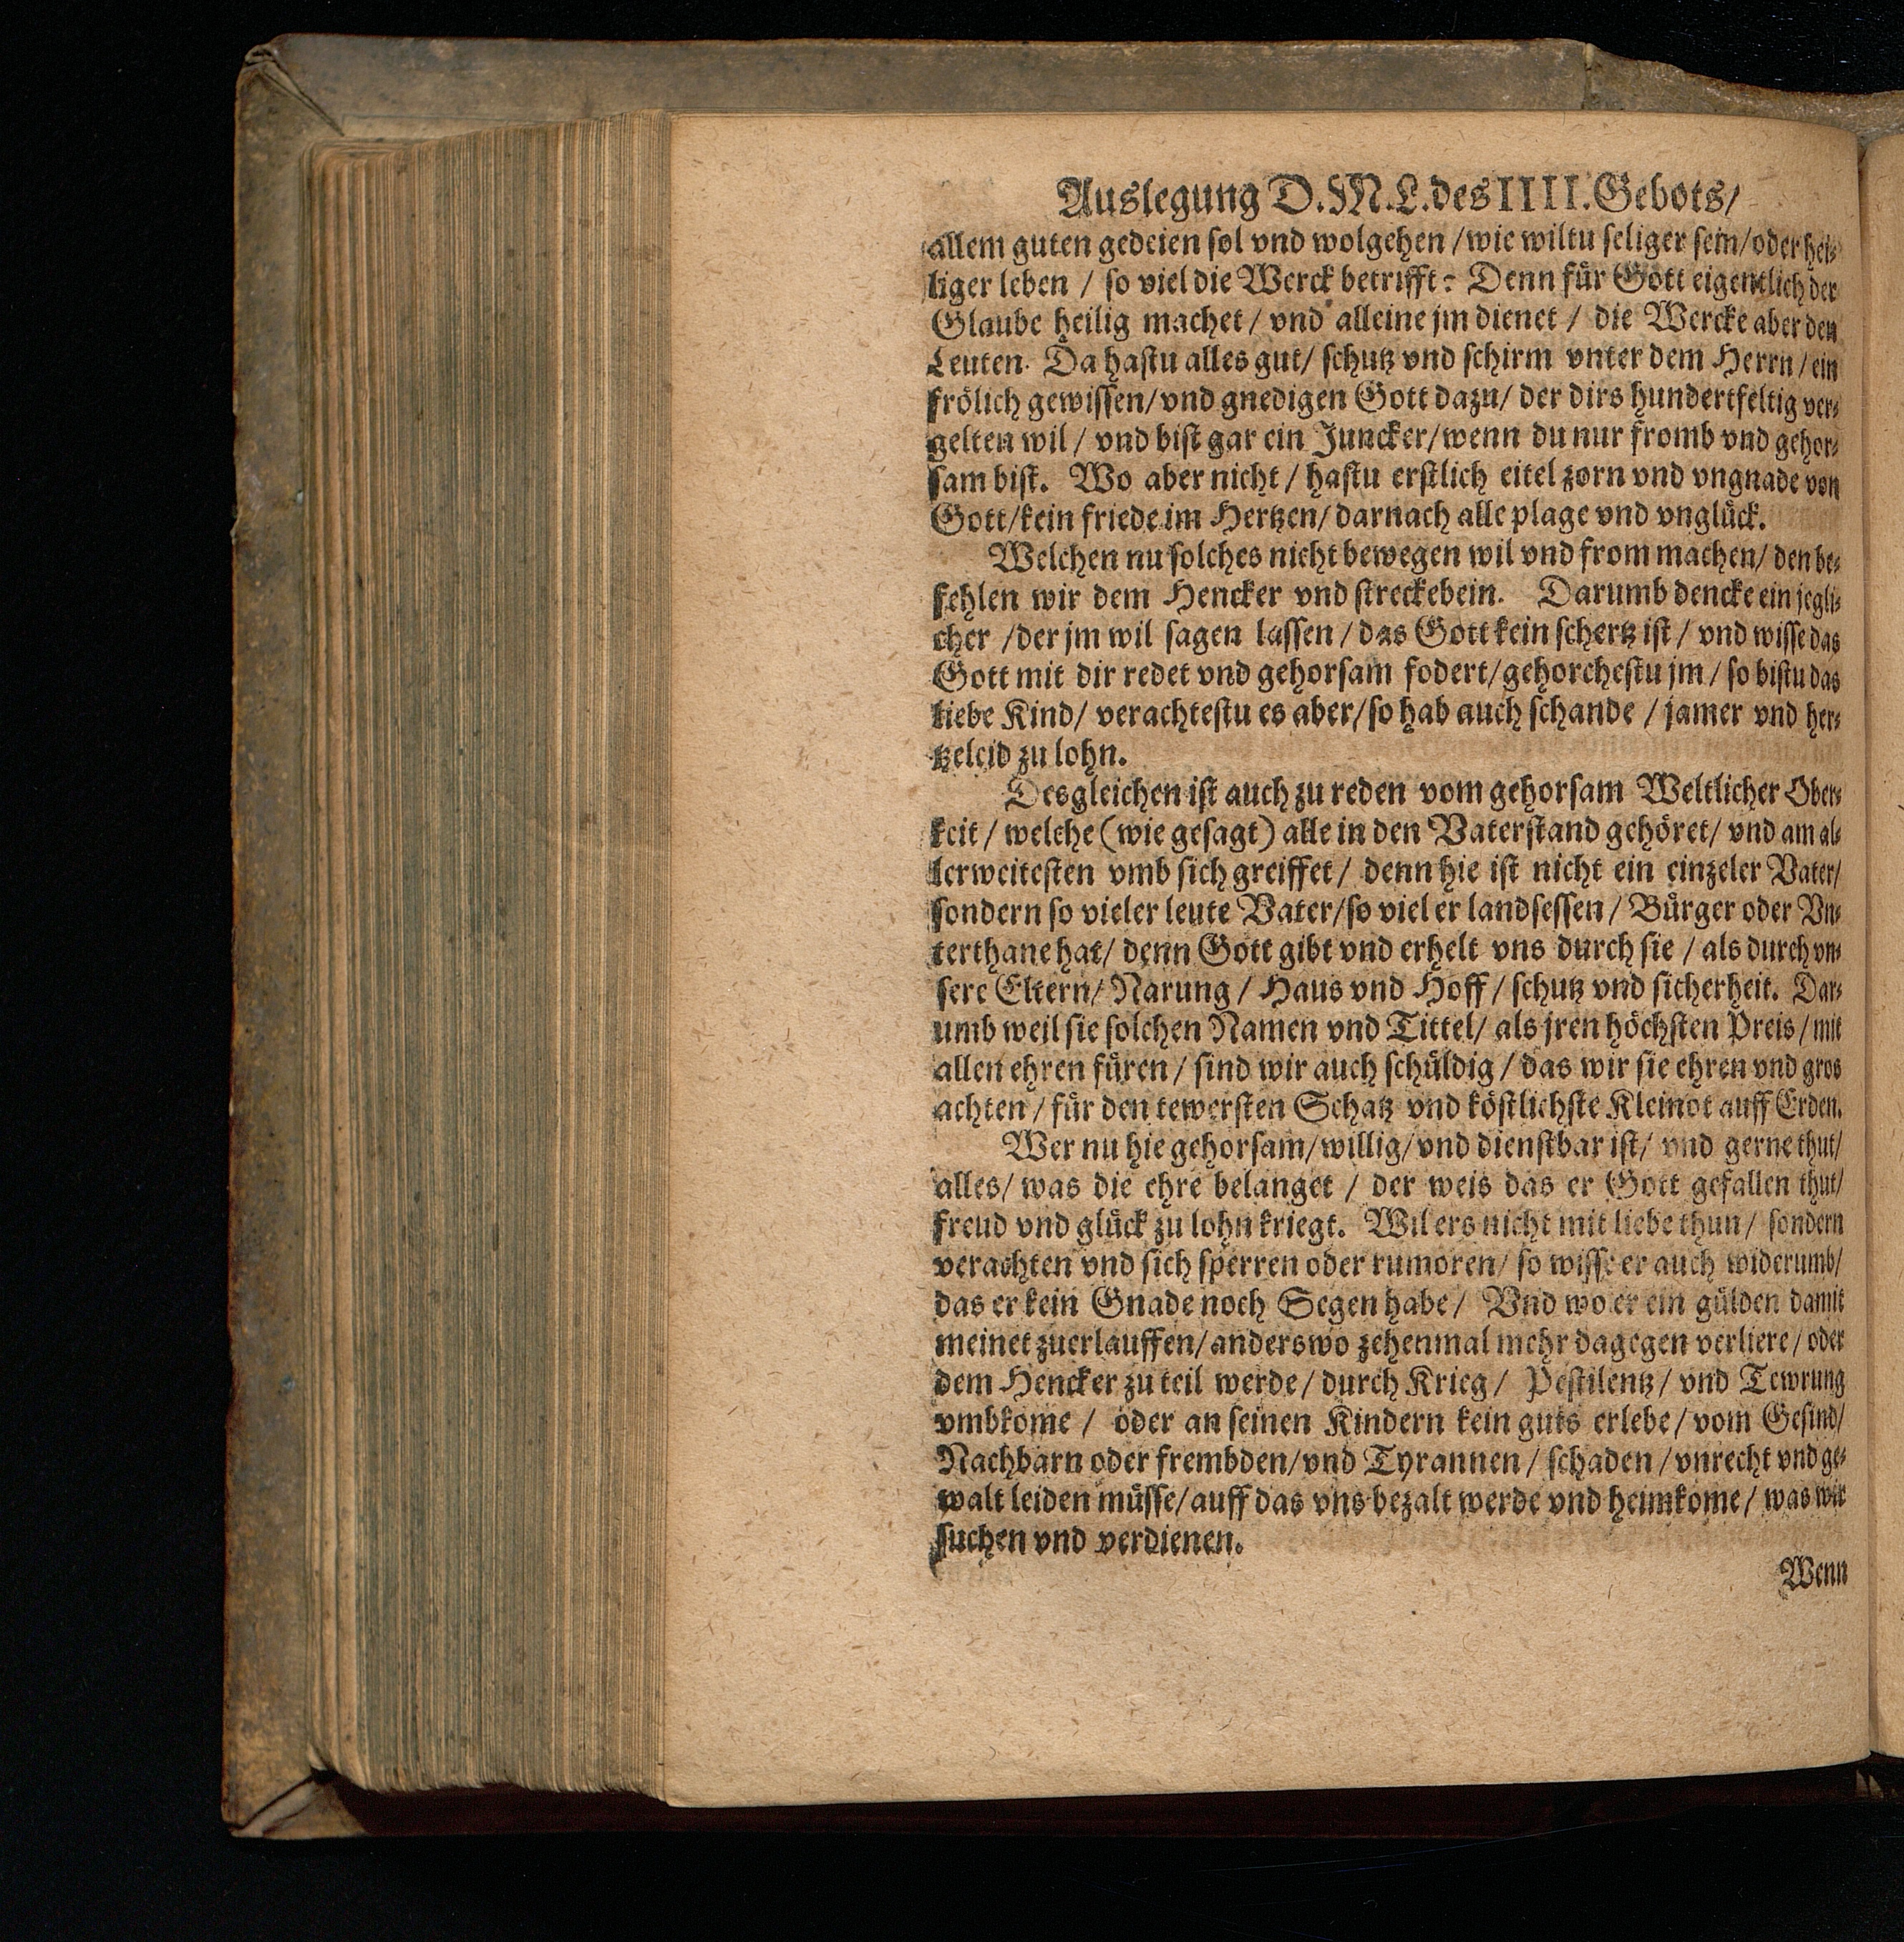 Auslegung D. M. L. des IIII. Gebots/
allem guten gedeien sol vnd wolgehen / wie wiltu seliger sein/ oder hei-
liger leben / so viel die Werck betrifft? Denn für Gott eigentlich der
Glaube heilig machet / vnd alleine jm dienet / die Wercke aber den
Leuten. Da hastu alles gut/ schutz vnd schirm vnter dem Herrn / ein
frölich gewissen/ vnd gnedigen Gott dazu/ der dirs hundertfeltig ver-
gelten wil / vnd bist gar ein Juncker/ wenn du nur fromb vnd gehor-
sam bist. Wo aber nicht / hastu erstlich eitel zorn vnd vngnade von
Gott/ kein friede im Hertzen/ darnach alle plage vnd vnglück.
Welchen nu solches nicht bewegen wil vnd from machen/ den be-
fehlen wir dem Hencker vnd streckebein. Darumb dencke ein jegli-
cher / der jm wil sagen lassen / das Gott kein schertz ist / vnd wisse das
Gott mit dir redet vnd gehorsam fodert/ gehorchestu jm / so bistu das
liebe Kind/ verachtestu es aber/ so hab auch schande / jamer vnd her-
tzeleid zu lohn.
Desgleichen ist auch zu reden vom gehorsam Weltlicher Ober-
keit / welche (wie gesagt) alle in den Vaterstand gehöret/ vnd am al-
lerweitesten vmb sich greiffet / denn hie ist nicht ein einzeler Vater/
sondern so vieler leute Vater/ so viel er landsessen / Bürger oder Vn-
terthane hat/ denn Gott gibt vnd erhelt vns durch sie / als durch vn-
sere Eltern/ Narung / Haus vnd Hoff / schutz vnd sicherheit. Dar-
umb weil sie solchen Namen vnd Tittel/ als jren höchsten Preis / mit
allen ehren füren / sind wir auch schüldig / das wir sie ehren vnd gros
achten / für den tewersten Schatz vnd köstlichste Kleinot auff Erden.
Wer nu hie gehorsam/ willig/ vnd dienstbar ist/ vnd gerne thut/
alles/ was die ehre belanget / der weis das er Gott gefallen thut/
freud vnd glück zu lohn kriegt. Wil ers nicht mit liebe thun / sondern
verachten vnd sich sperren oder rumoren/ so wisse er auch widerumb/
das er kein Gnade noch Segen habe / Vnd wo er ein gülden damit
meinet zuerlauffen/ anderswo zehenmal mehr dagegen verliere / oder
dem Hencker zu teil werde / durch Krieg / Pestilentz / vnd Tewrung
vmbkome / oder an seinen Kindern kein guts erlebe / vom Gesind/
Nachbarn oder frembden/ vnd Tyrannen / schaden / vnrecht vnd ge-
walt leiden müsse/ auff das vns bezalt werde vnd heimkome / was wir
suchen vnd verdienen.
Wenn